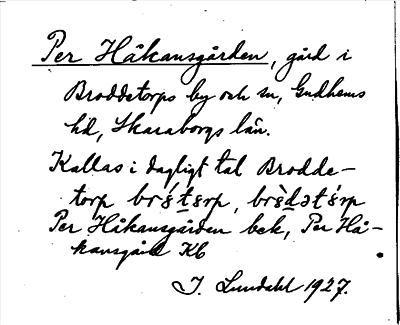 Per Håkansgården, gård i
Broddetorps by och sn, Gudhems
hd, Skaraborgs län.
Kallas i dagligt tal Brodde-
torp
Per Håkansgården bek, Per Hå-
kansgård Kb
I. Lundahl 1927.